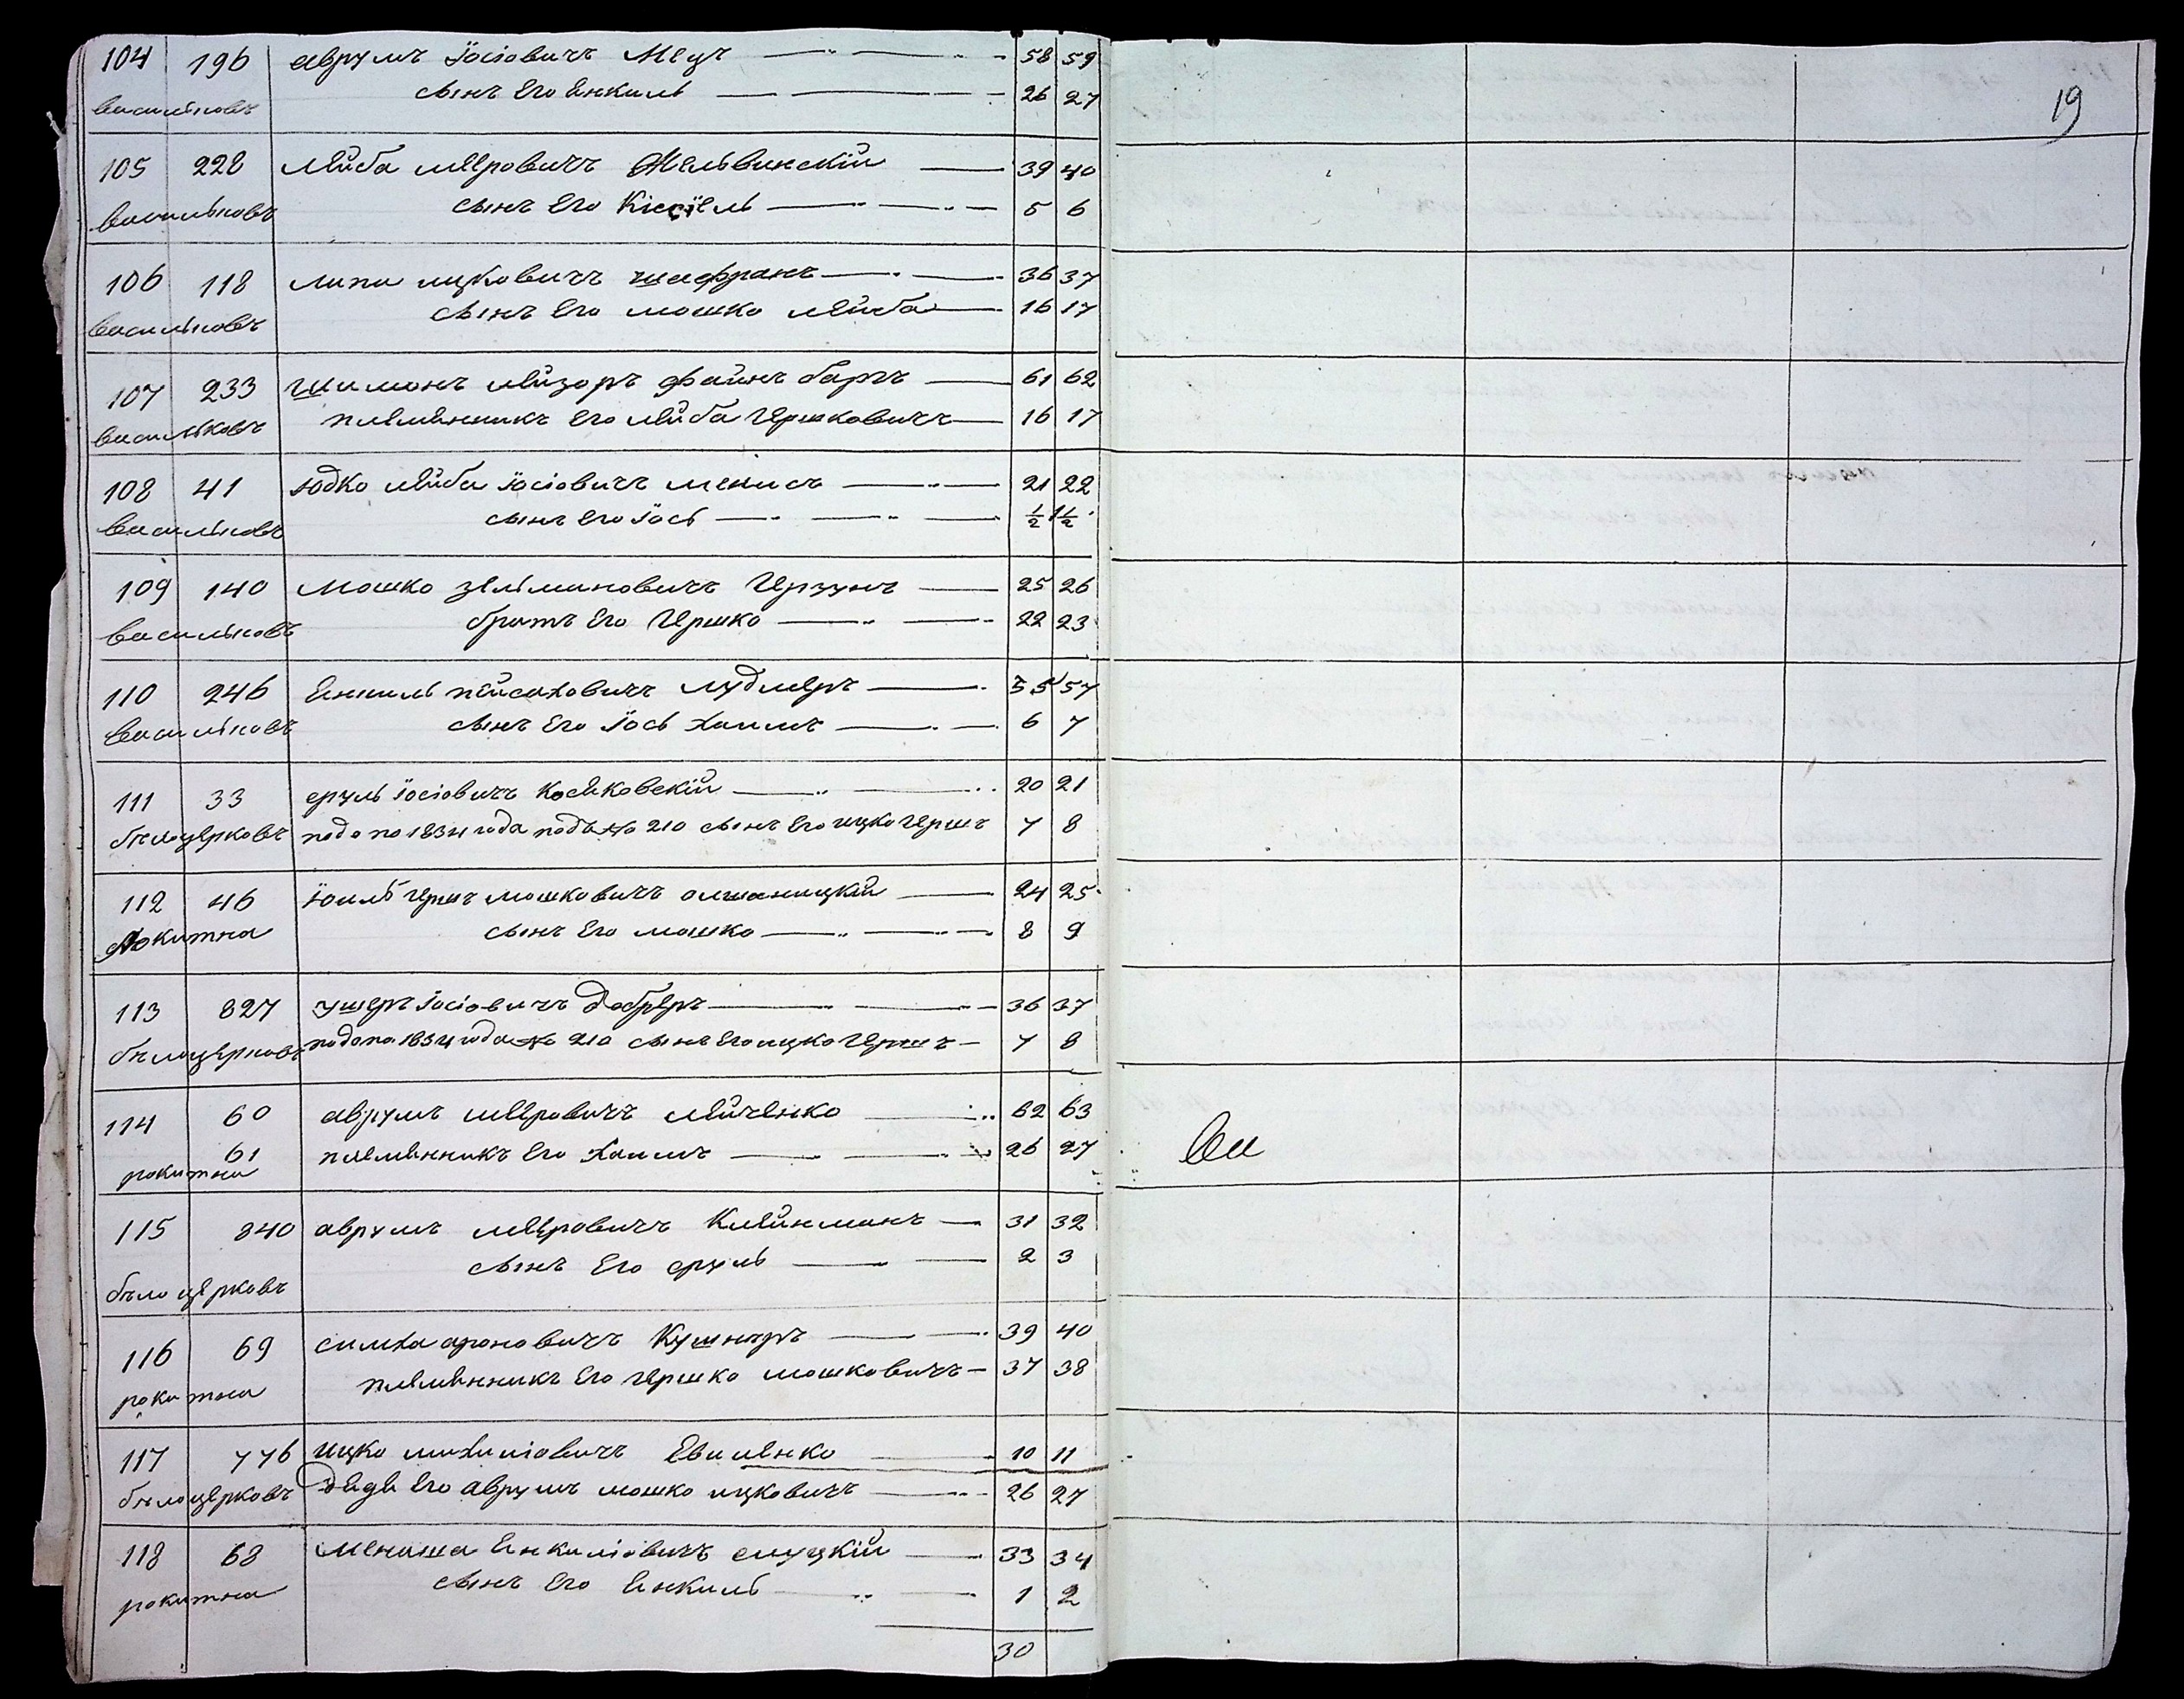 104 196 аврумъ Iосiовичъ Мецъ 58 59
сынъ его Енкиль 26 27
васильковъ
105 228 Лейба мееровичъ Жельвинскiй 39 40
сынъ его Кiесiель 5 6
васильковъ
106 118 липа ицковичъ шафранъ 36 37
сынъ его мошко лейба 16 17
васильковъ
107 233 шимонъ лейзоръ файнъ баргъ 61 62
племянникъ его лейба гершковичъ 16 17
васильковъ
108 41 юдко лейба iосiовичъ менисъ 21 22
сынъ его iось ½ 1½
васильковъ
109 140 мошко зельмановичъ герзунъ 25 26
братъ его гершко 22 23
васильковъ
110 246 Енкиль пейсаховичъ лудмеръ 55 57
сынъ его iось хаимъ 6 7
васильковъ
111 33 сруль iосiовичъ косяковскiй 20 21
белоцерковъ подо по 1834 года подъ № 210 сынъ его ицко гершъ 7 8
112 46 юиль гершъ мошковичъ ольшаницкiй 24 25
рокитна сынъ его мошко 8 9
113 827 ушеръ iосiовичъ добреръ 36 37
белоцерковъ подопо 1834 года № 210 сынъ его ицко гершъ 7 8
114 60 аврумъ мееровичъ лейченко 62 63
61 племянникъ его хаимъ 26 27
рокитна
Ва
115 840 аврумъ мееровичъ Клейнманъ 31 32
сынъ его сруль 2 3
бело церковъ
116 69 симха ароновичъ Кушниръ 39 40
племянникъ его гершко мошковичъ 37 38
рокитна
117 776 ицко михилiовичъ Евиленко 10 11
белоцерковъ дядя его аврумъ мошко ицковичъ 26 27
118 68 менаша Енкилiовичъ слуцкiй 33 34
сынъ его Енкиль 1 2
рокитна
30
19